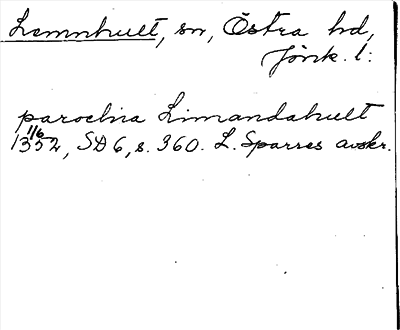 Lemnhult, sn, Östra hd,
Jönk. l:
parochia Limandahult
11/6
1352, SD 6, s. 360. L. Sparres avskr.